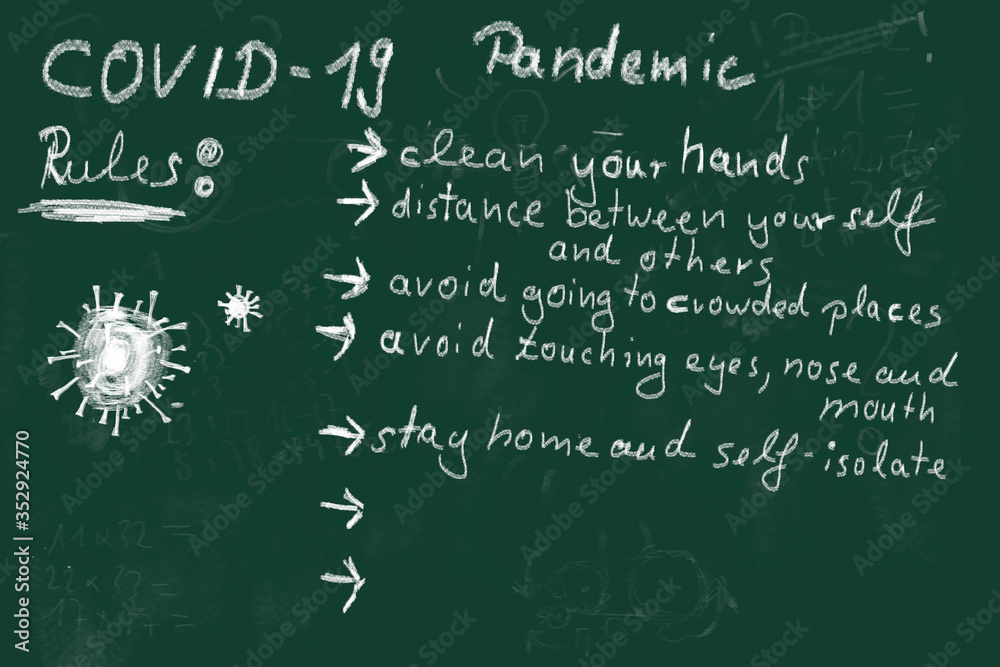 COVID-19 Pandemic
Rules:
→ clean your hands
→ distance between your self
and others
→ avoid going to crowded places
→ avoid touching eyes, nose and
mouth
→ stay home and self-isolate
→
→
1+1=
11×32 =
22 × 32 =
17×
Adobe Stock | #352924770